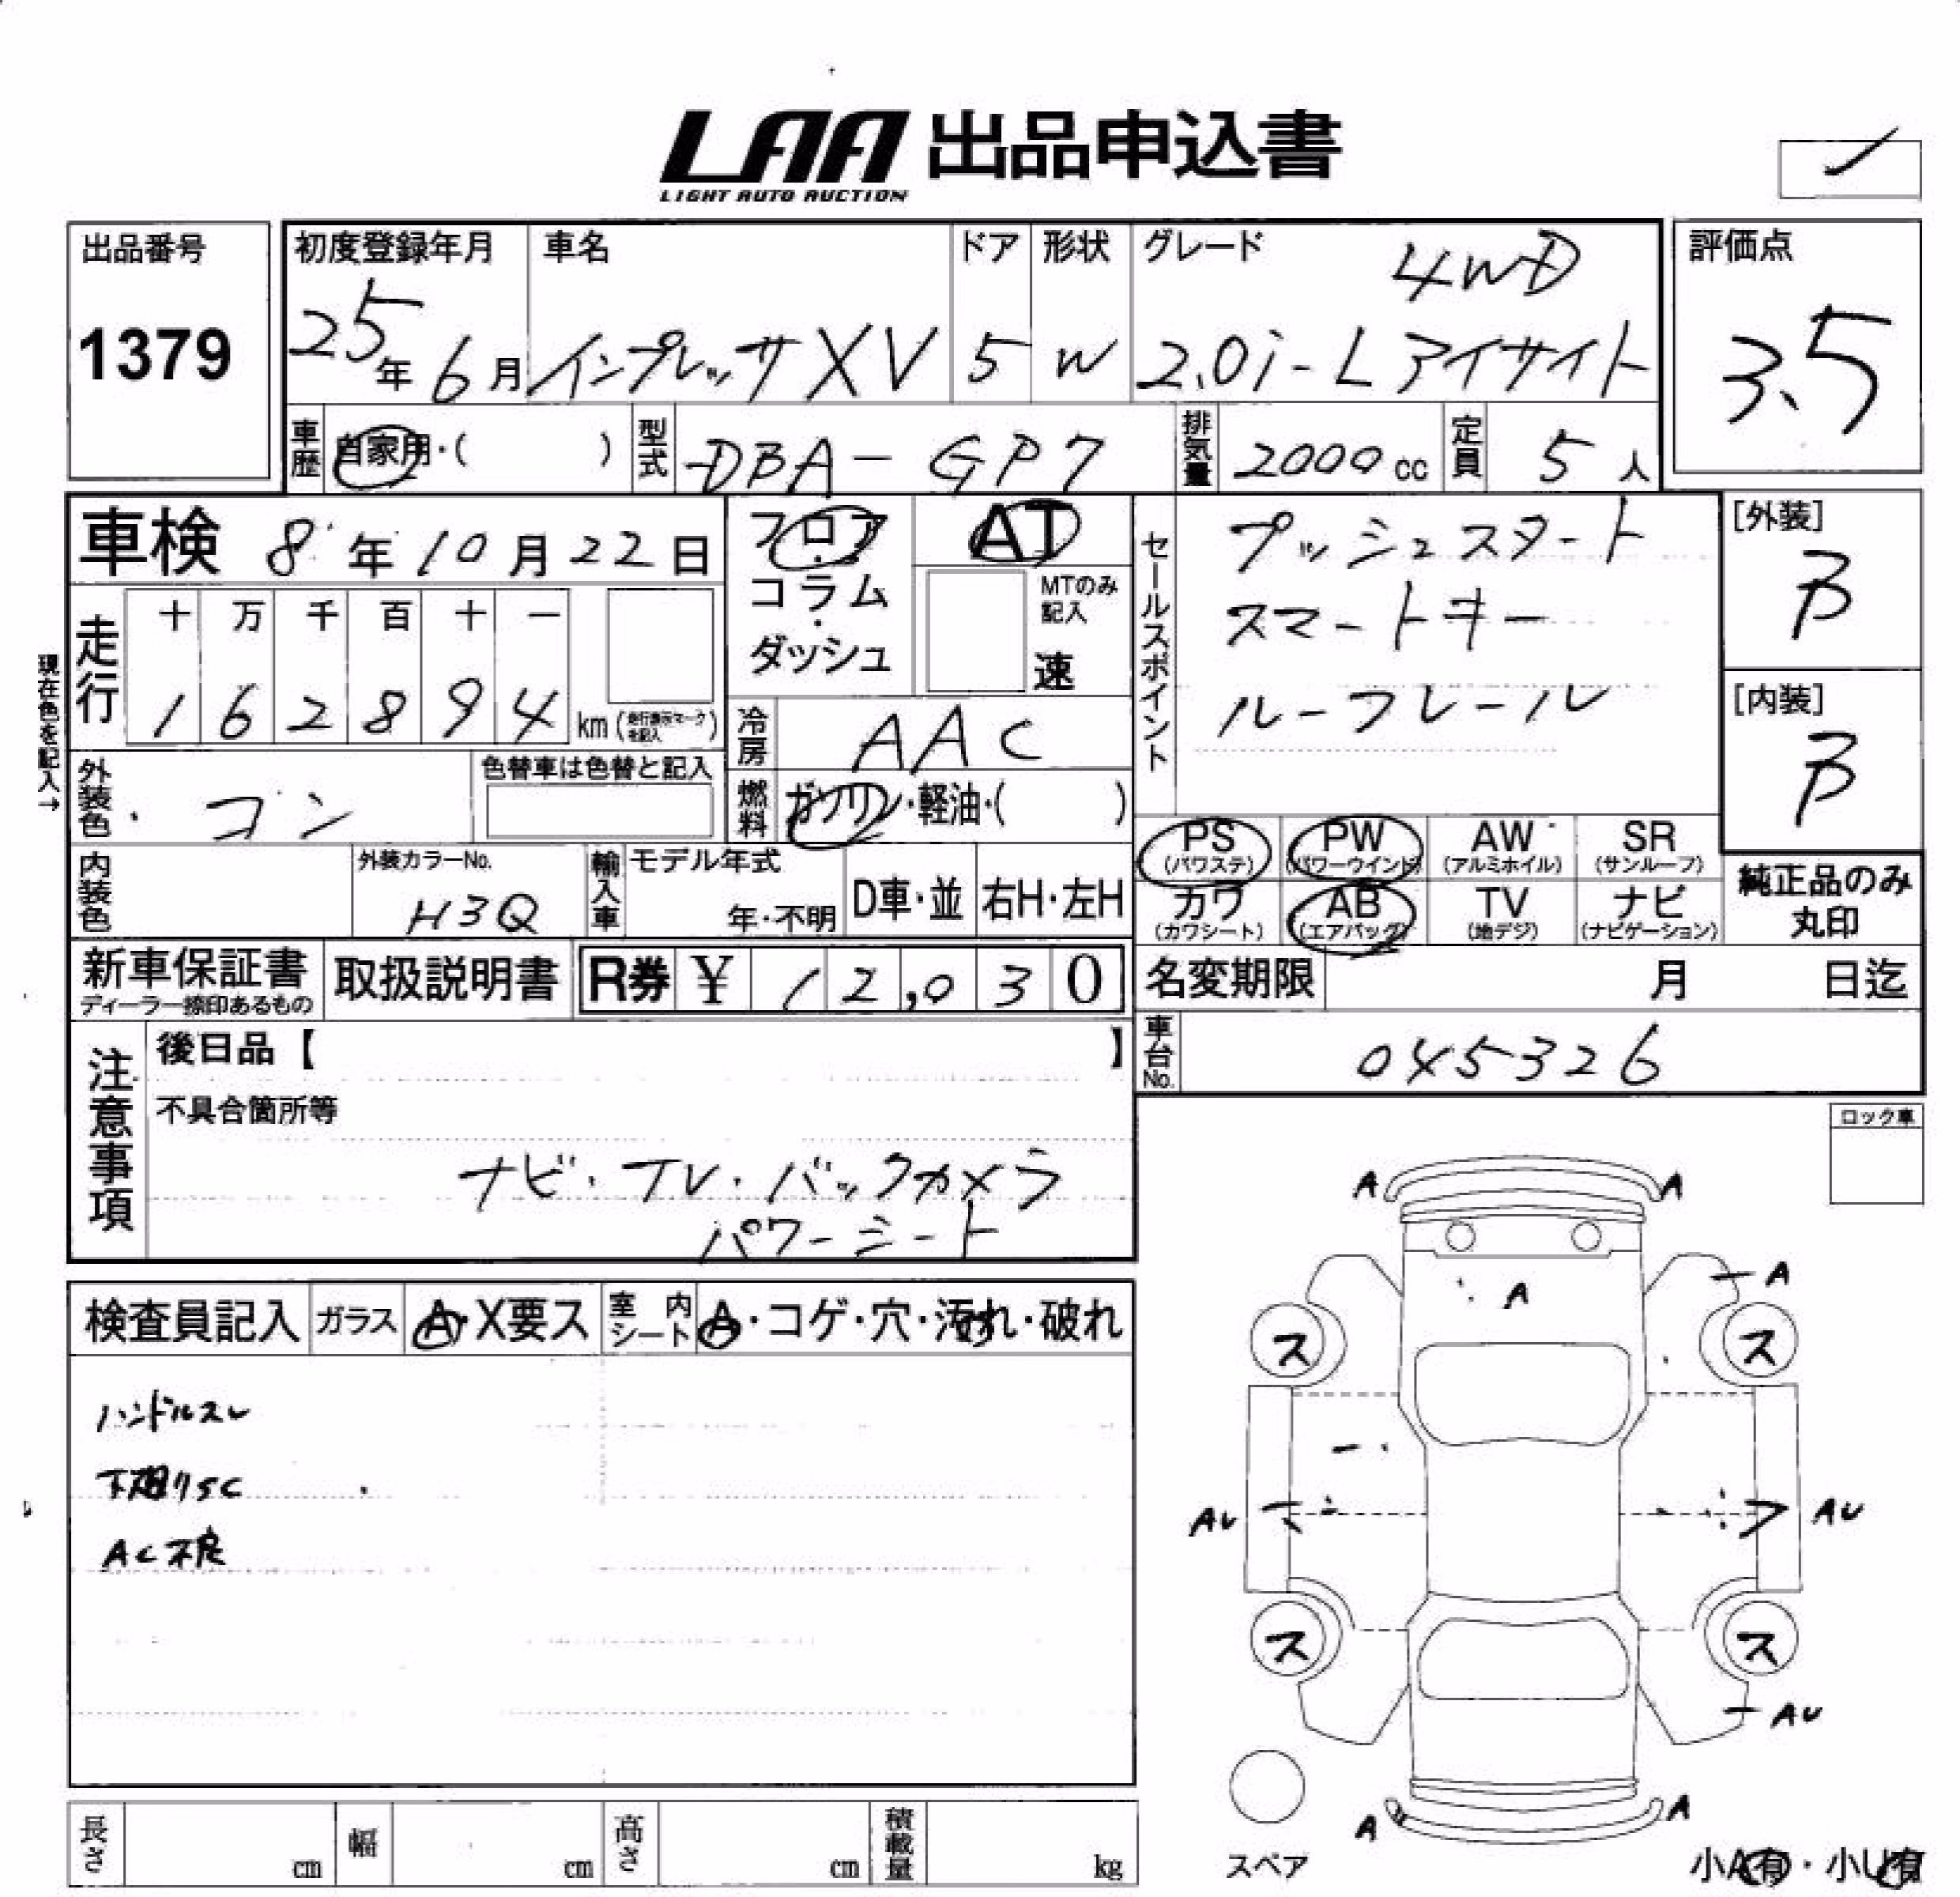 LAA 出品申込書
LIGHT AUTO AUCTION
出品番号
1379
初度登録年月
25年6月
車名
インプレッサXV
ドア
5
形状
W
グレード
4WD
2.0i-L アイサイト
評価点
3.5
車歴 自家用・( )
型式 DBA-GP7
排気量 2000cc
定員 5人
車検 8年10月22日
現在色を記入→
走行
十 万 千 百 十 一
1 6 2 8 9 4 km (走行表示マークを記入)
外装色 コン
色替車は色替と記入
内装色
外装カラーNo.
H3Q
輸入車
モデル年式
年・不明
D車・並
右H・左H
フロア・コラム・ダッシュ
AT
MTのみ記入
速
冷房 AAC
燃料 ガソリン・軽油・( )
セールスポイント
プッシュスタート
スマートキー
ルーフレール
[外装]
B
[内装]
B
PS (パワステ)
PW (パワーウインド)
AW (アルミホイル)
SR (サンルーフ)
カワ (カワシート)
AB (エアバッグ)
TV (地デジ)
ナビ (ナビゲーション)
純正品のみ
丸印
新車保証書
ディーラー捺印あるもの
取扱説明書
R券 ¥ 12,030
名変期限 月 日迄
車台No. 045326
注意事項
後日品【 】
不具合箇所等
ナビ・TV・バックカメラ
パワーシート
ロック車
検査員記入
ガラス A・X要ス
室内シート A・コゲ・穴・汚れ・破れ
ハンドルスレ
下廻りSC
AC不良
A A
A A
ス ス
AU AU
ス ス
AU
A A
スペア
小A有・小U有
長さ cm
幅 cm
高さ cm
積載量 kg